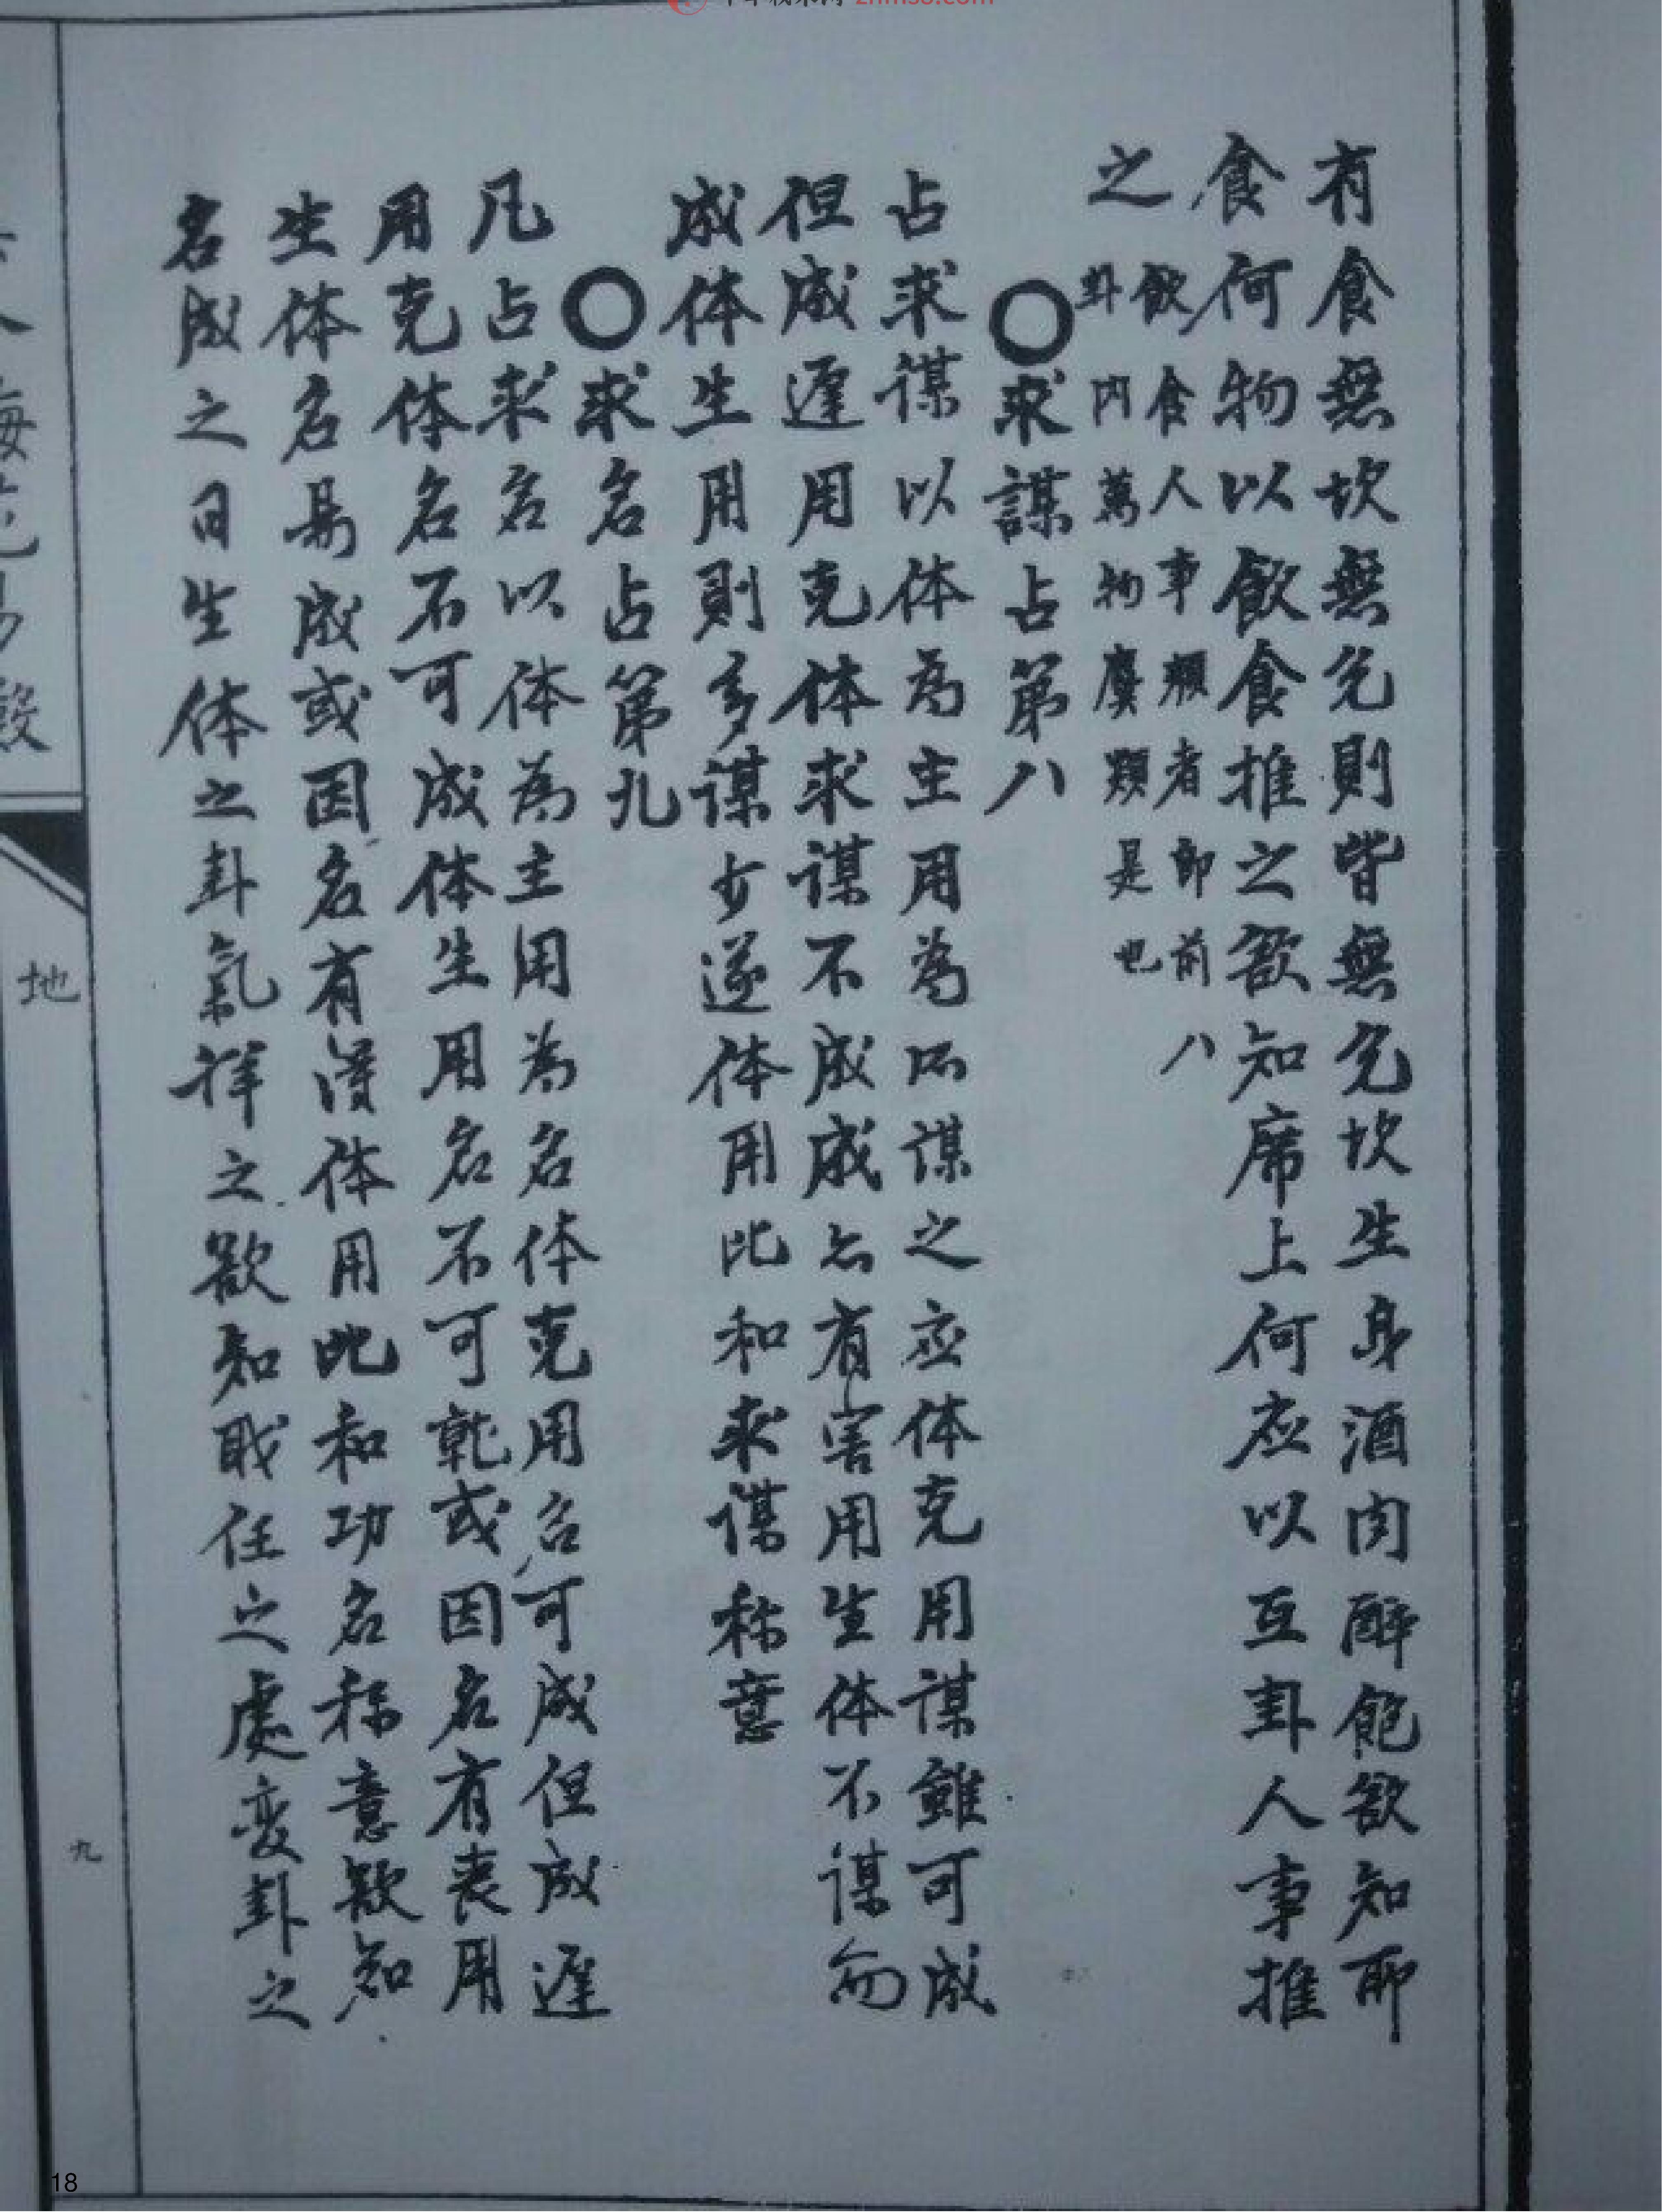 有食無坎無兌則皆無兌坎生身酒肉醉飽欲知所
食何物以飲食推之欲知席上何应以互卦人事推
之
飲食人事類者即前八
卦内萬物属類是也
〇求謀占第八
占求謀以体為主用為所谋之应体克用谋雖可成
但成遲用克体求谋不成成亦有害用生体不谋而
成体生用則多谋少遂体用比和求谋称意
〇求名占第九
凡占求名以体為主用為名体克用名可成但成遲
用克体名不可成体生用名不可就或因名有丧用
生体名易成或因名有得体用比和功名称意欲知
名成之日生体之卦氣祥之欲知职任之處变卦之
地
九
18